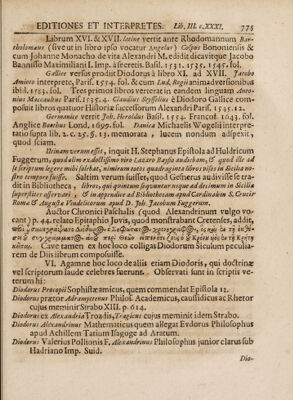 EDITIONES ET INTERPRETES. Lib. III. c. XXXI. 775
Librum XVI. & XVII. latine vertit ante Rhodomannum Bar-
tholomæus (sive ut in libro ipso vocatur Angelus) Cospus Bononiensis &
cum Johanne Monacho de vita Alexandri M. edidit dicavitque Jacobo
Bannisio Maximiliani I. Imp. à secretis. Basil. 1531. 1535. 1545. fol.
Gallice versus prodiit Diodorus à libro XI. ad XVII. Jacobo
Amioto interprete, Paris. 1554. fol. & cum Lud. Regii animadversionibus
ibid. 1585. fol. Tres primos libros verterat in eandem linguam Anto-
nius Maccaultus Paris. 1535. 4. Claudius Seysselius è Diodoro Gallice com-
posuit libros quatuor Historiæ successorum Alexandri Paris. 1535. 12.
Germanice vertit Joh. Heroldus Basil. 1554. Francof. 1643. fol.
Anglice Lond. 1699. fol. Danica Michaelis Wogelii interpre-
tatio supra lib. 2. c. 25. §. 13. memorata, lucem nondum adspexit,
quod sciam.
inquit H. Stephanus Epistola ad Huldricum
Fuggerum, quod olim ex doctissimo viro Lazaro Baysio audiebam, & quod ille ad
se scriptum legere mihi solebat, nimirum totos quadraginta libros visos in Sicilia no-
stro tempore fuisse. Saltim verum fuisset, quod Gesnerus audivisse se tra-
dit in Bibliotheca, libros, qui omnium supponuntur usque ad decimum in Sicilia
superstites asservari, & in appendice ad Bibliothecam apud Cardinalem S. Crucis
Romæ & Augustæ Vindelicorum apud D. Joh. Jacobum Fuggerum.
Auctor Chronici Paschalis (quod Alexandrinum vulgo vo-
cant) p. 44. relato Epitaphio Jovis, quod monstrant Cretenses, addit,
Cave tamen ex hoc loco colligas Diodorum Siculum peculia-
rem de Diis librum composuisse.
VI. Agamne hoc loco de aliis etiam Diodoris, qui doctrinæ
vel scriptorum laude celebres fuerunt. Observati sunt in scriptis ve-
terum hi:
Diodorus Protospii Sophistæ amicus, quem commendat Epistola 12.
Diodorus prætor Adramyttenus Philos. Academicus, causidicus ac Rhetor
cujus meminit Strabo XIII. p. 614.
Diodorus ex Alexandria Troadis, Tragicus cujus meminit idem Strabo.
Diodorus Alexandrinus Mathematicus quem allegat Evdorus Philosophus
apud Achillem Tatium Isagoge ad Aratum.
Diodorus Valerius Pollionis F. Alexandrinus Philosophus junior clarus sub
Hadriano Imp. Suid.
Dio-